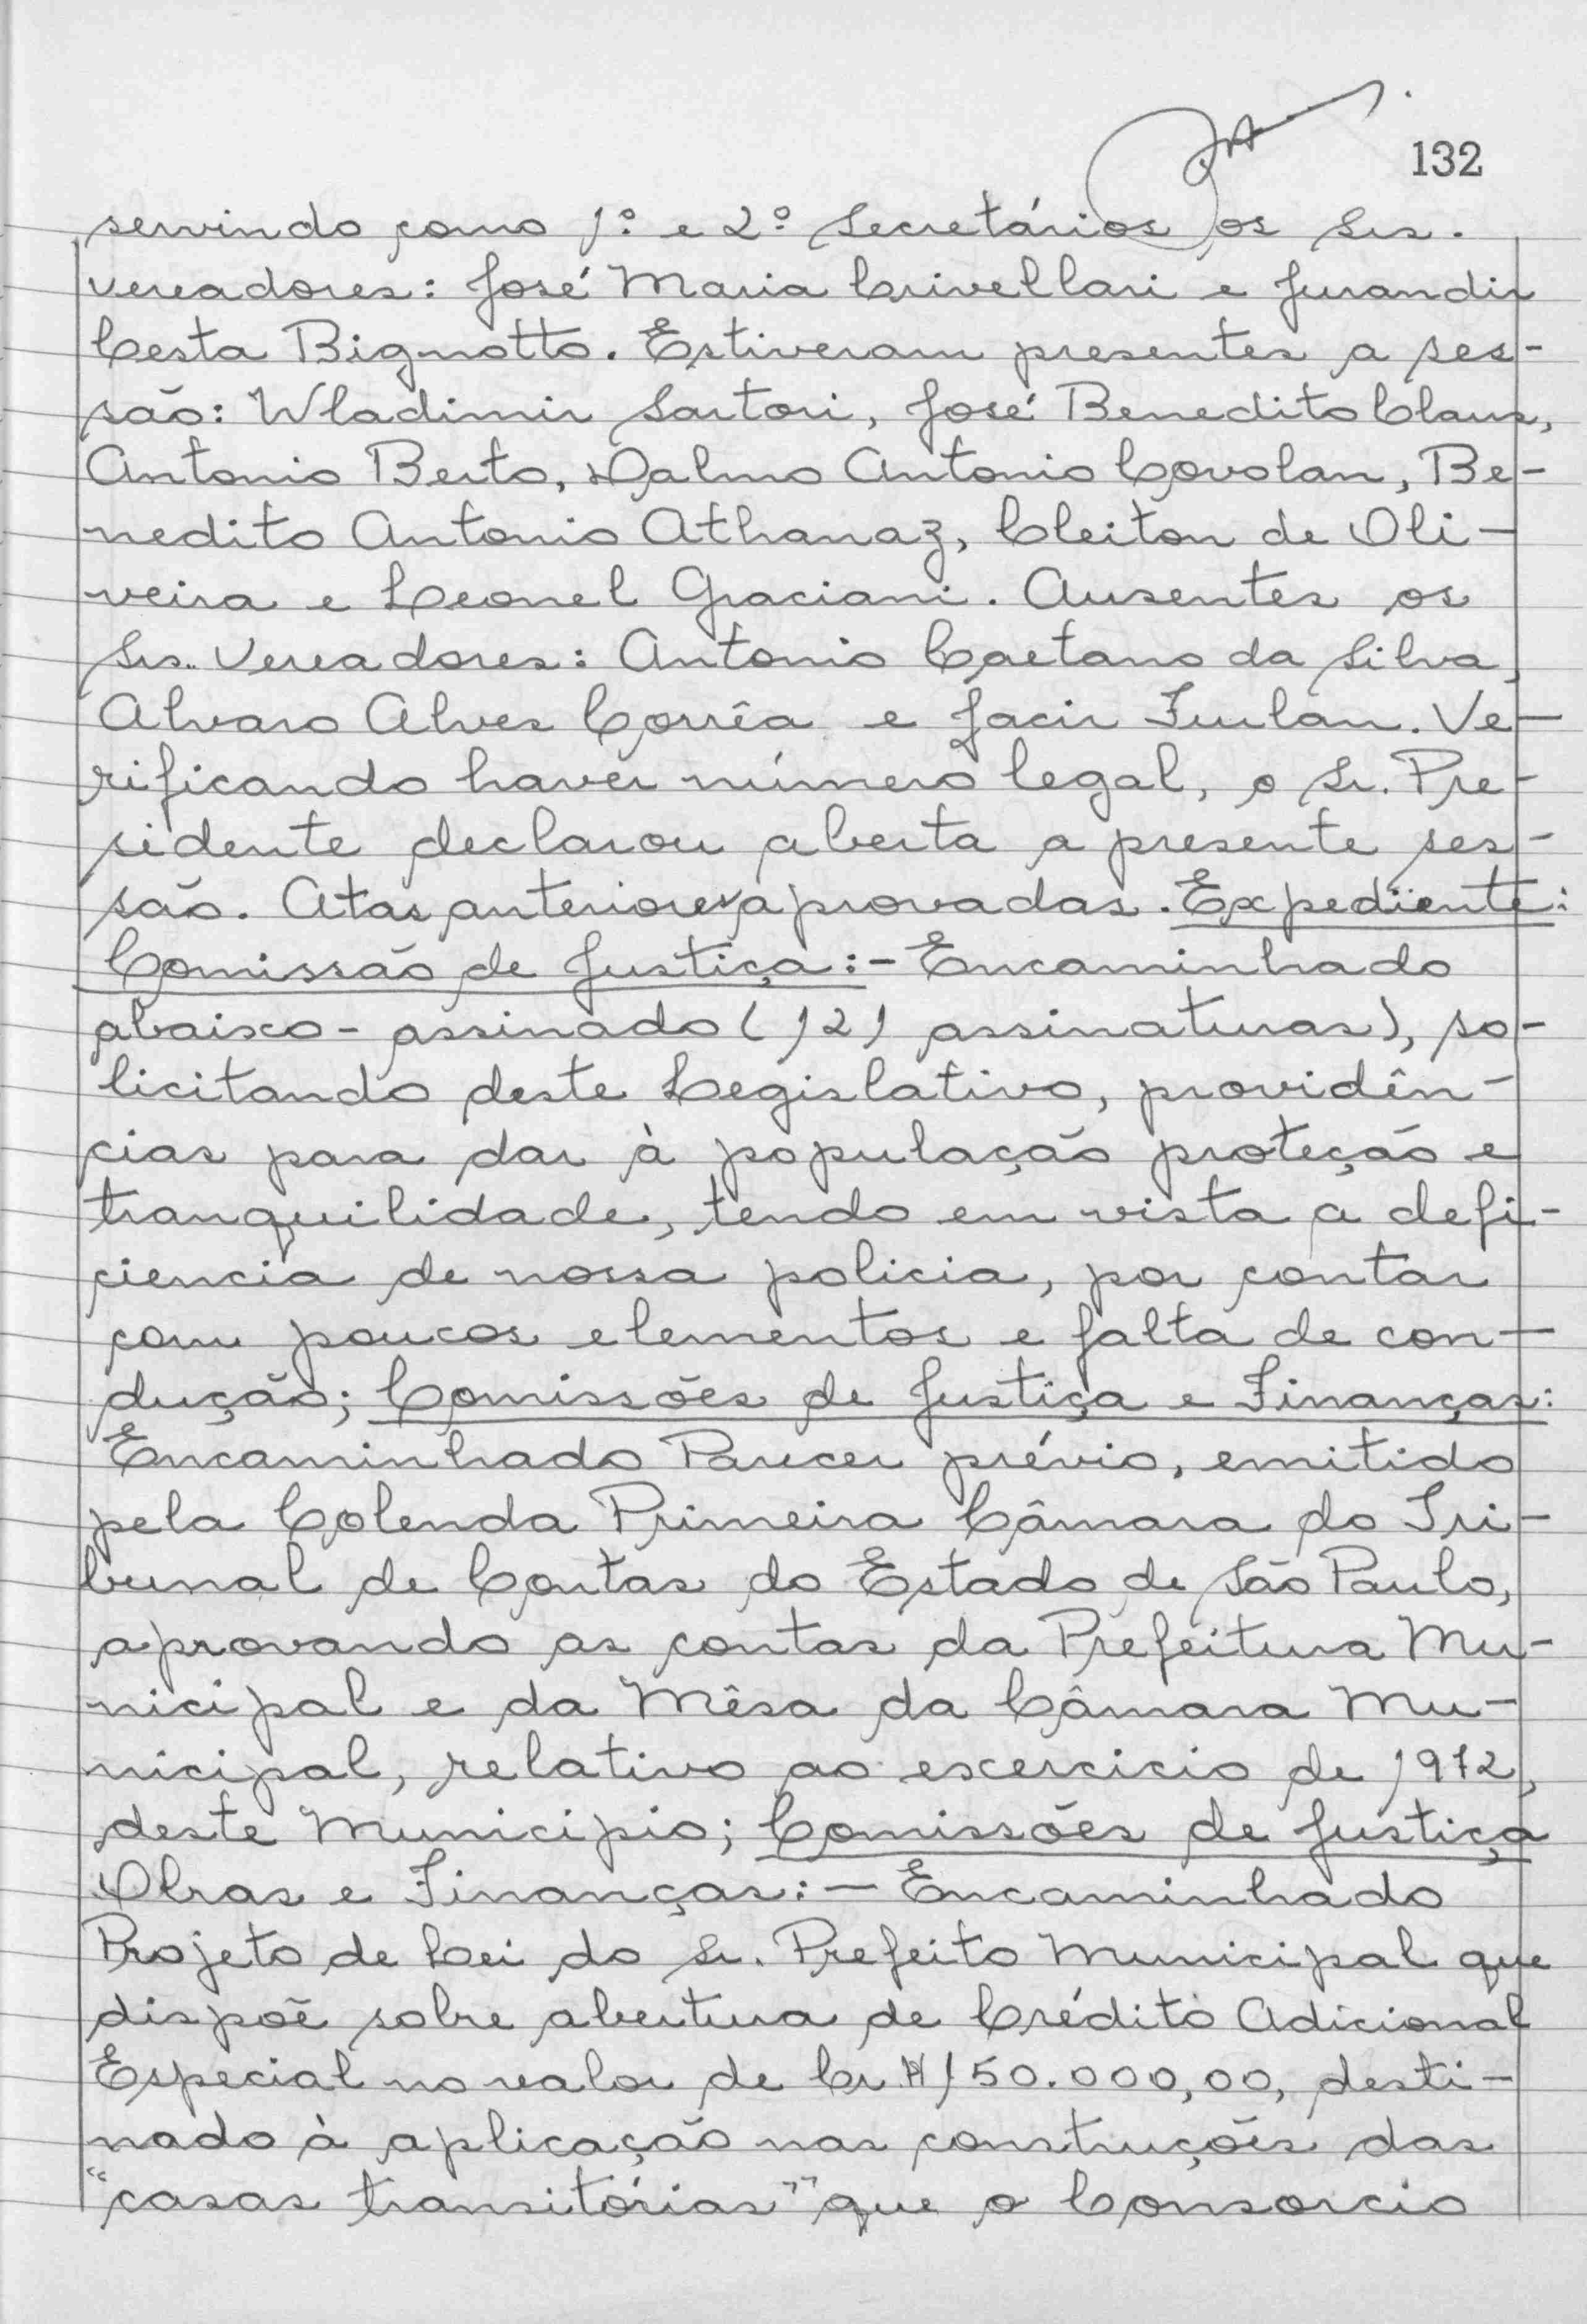 132
servindo como 1º e 2º Secretários os Srs.
vereadores: José Maria Crivellari e Jurandir
Cesta Bignotto. Estiveram presentes a ses-
são: Wladimir Sartori, José Benedito Claus,
Antonio Berto, Dalmo Antonio Covolan, Be-
nedito Antonio Athanaz, Cleiton de Oli-
veira e Leonel Graciani. Ausentes os
Srs. Vereadores: Antonio Caetano da Silva,
Alvaro Alves Corrêa e Jacir Furlan. Ve-
rificando haver número legal, o Sr. Pre-
sidente declarou aberta a presente ses-
são. Atas anteriores aprovadas. Expediente:
Comissão de Justiça:- Encaminhado
abaixo-assinado (121 assinaturas), so-
licitando deste Legislativo, providên-
cias para dar à população proteção e
tranquilidade, tendo em vista a defi-
ciencia de nossa policia, por contar
com poucos elementos e falta de con-
dução; Comissões de Justiça e Finanças:
Encaminhado Parecer prévio, emitido
pela Colenda Primeira Câmara do Tri-
bunal de Contas do Estado de São Paulo,
aprovando as contas da Prefeitura Mu-
nicipal e da Mêsa da Câmara Mu-
nicipal, relativo ao exercicio de 1972,
deste Municipio; Comissões de Justiça
Obras e Finanças:- Encaminhado
Projeto de Lei do Sr. Prefeito Municipal que
dispoê sobre abertura de Crédito Adicional
Especial no valor de Cr$150.000,00, desti-
nado à aplicação nas construções das
"casas transitórias" que o Consorcio